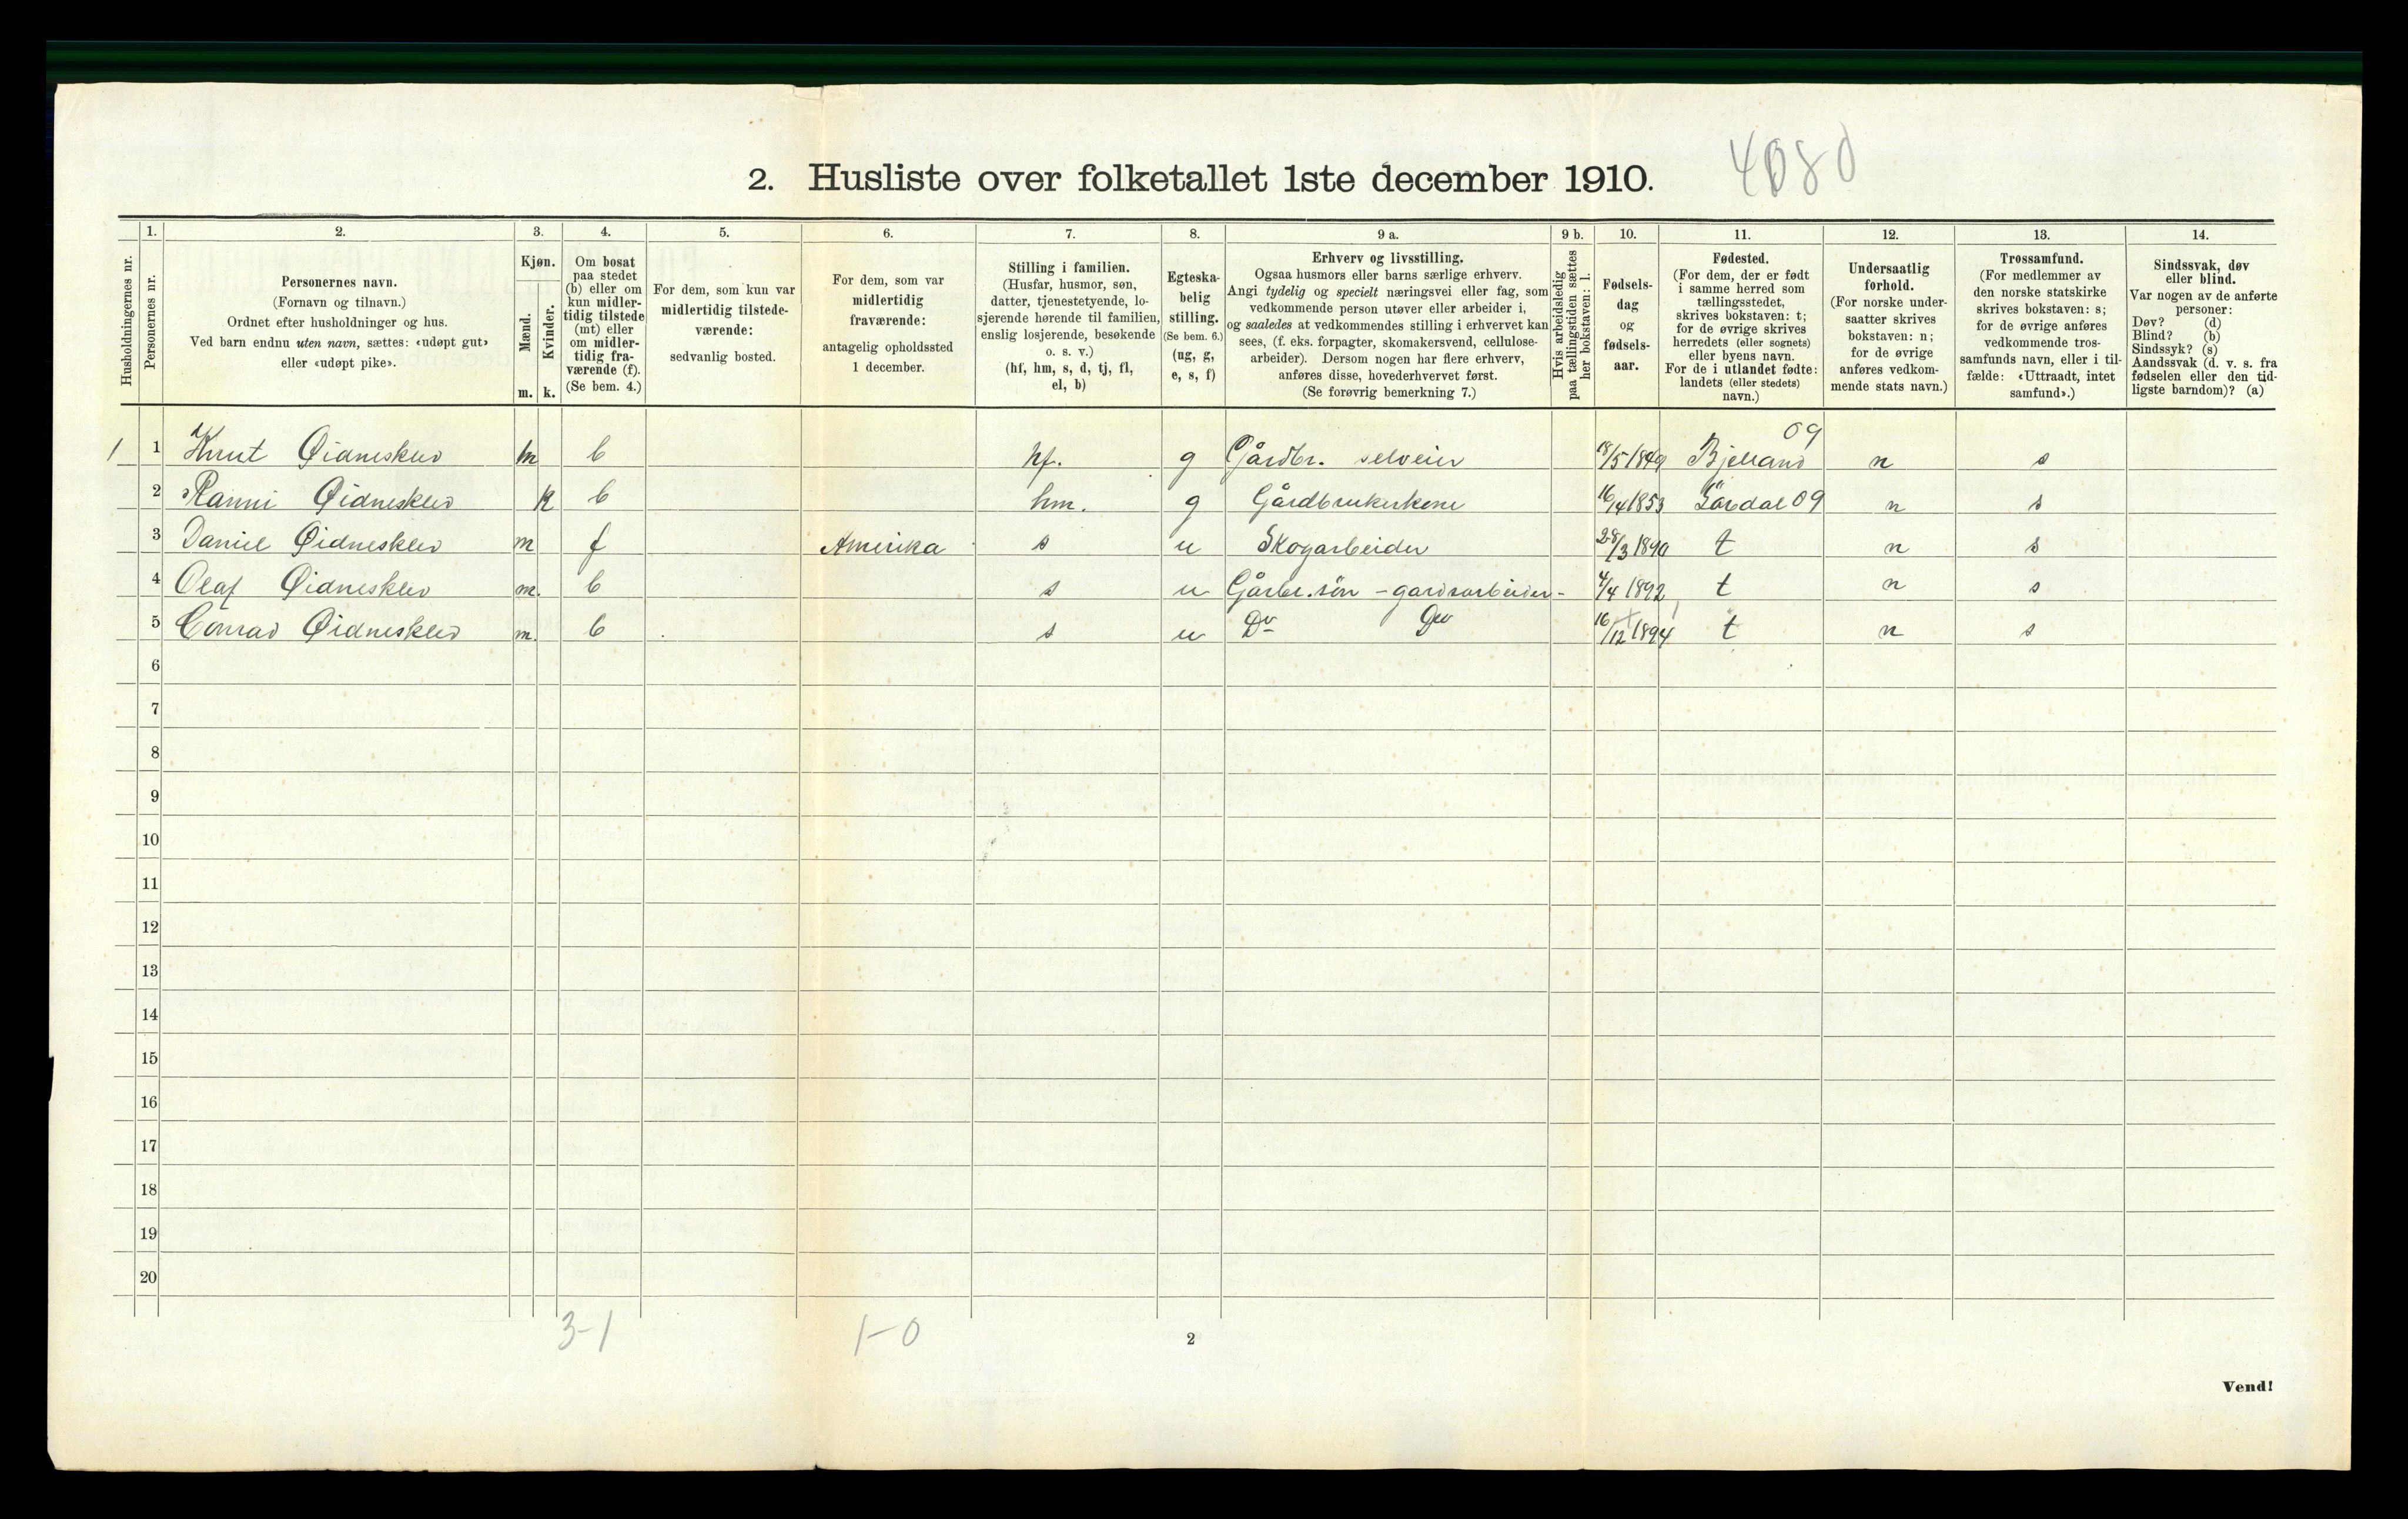 2. Husliste over folketallet 1ste december 1910. 4080
Husholdningernes nr.
1. Personernes nr.
2. Personernes navn.
(Fornavn og tilnavn.)
Ordnet efter husholdninger og hus.
Ved barn endnu uten navn, sættes: «udøpt gut»
eller «udøpt pike».
3. Kjøn.
Mænd. Kvinder.
m. k.
4. Om bosat
paa stedet
(b) eller om
kun midler-
tidig tilstede
(mt) eller
om midler-
tidig fra-
værende (f).
(Se bem. 4.)
5. For dem, som kun var
midlertidig tilstede-
værende:
sedvanlig bosted.
6. For dem, som var
midlertidig
fraværende:
antagelig opholdssted
1 december.
7. Stilling i familien.
(Husfar, husmor, søn,
datter, tjenestetyende, lo-
sjerende hørende til familien,
enslig losjerende, besøkende
o. s. v.)
(hf, hm, s, d, tj, fl,
el, b)
8. Egteska-
belig
stilling.
(Se bem. 6.)
(ug, g,
e, s, f)
9 a. Erhverv og livsstilling.
Ogsaa husmors eller barns særlige erhverv.
Angi tydelig og specielt næringsvei eller fag, som
vedkommende person utøver eller arbeider i,
og saaledes at vedkommendes stilling i erhvervet kan
sees, (f. eks. forpagter, skomakersvend, cellulose-
arbeider). Dersom nogen har flere erhverv,
anføres disse, hovederhvervet først.
(Se forøvrig bemerkning 7.)
9 b. Hvis arbeidsledig
paa tællingstiden sættes
her bokstaven: l.
10. Fødsels-
dag
og
fødsels-
aar.
11. Fødested.
(For dem, der er født
i samme herred som
tællingsstedet,
skrives bokstaven: t;
for de øvrige skrives
herredets (eller sognets)
eller byens navn.
For de i utlandet fødte:
landets (eller stedets)
navn.)
12. Undersaatlig
forhold.
(For norske under-
saatter skrives
bokstaven: n;
for de øvrige
anføres vedkom-
mende stats navn.)
13. Trossamfund.
(For medlemmer av
den norske statskirke
skrives bokstaven: s;
for de øvrige anføres
vedkommende tros-
samfunds navn, eller i til-
fælde: «Uttraadt, intet
samfund».)
14. Sindssvak, døv
eller blind.
Var nogen av de anførte
personer:
Døv? (d)
Blind? (b)
Sindssyk? (s)
Aandssvak (d. v. s. fra
fødselen eller den tid-
ligste barndom)? (a)
09
1 1 Knut Øidnesklev m b hf. g Gårdbr. selveier 18/5 1849 Bjelland n s
2 Ranni Øidnesklev k b hm. g Gårdbrukerkone 16/4 1853 09 n s
3 Daniel Øidnesklev m f Amerika s u Skogarbeider 28/3 1890 t n s
4 Olaf Øidnesklev m. b s u Gårbr. søn - gardsarbeider - 4/4 1892 t n s
5 Conrad Øidnesklev m. b s u Do Do 16/12 1894 t n s
6
7
8
9
10
11
12
13
14
15
16
17
18
19
20
3-1 1-0
2
Vend!